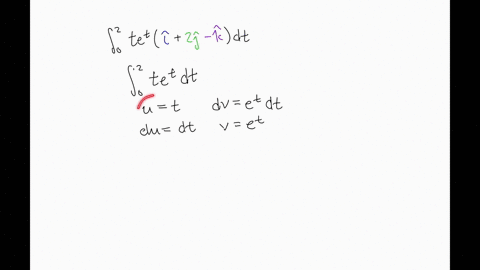 ∫₀² te^t(î + 2ĵ - k̂)dt
∫₀² te^t dt
u = t dv = e^t dt
du = dt v = e^t